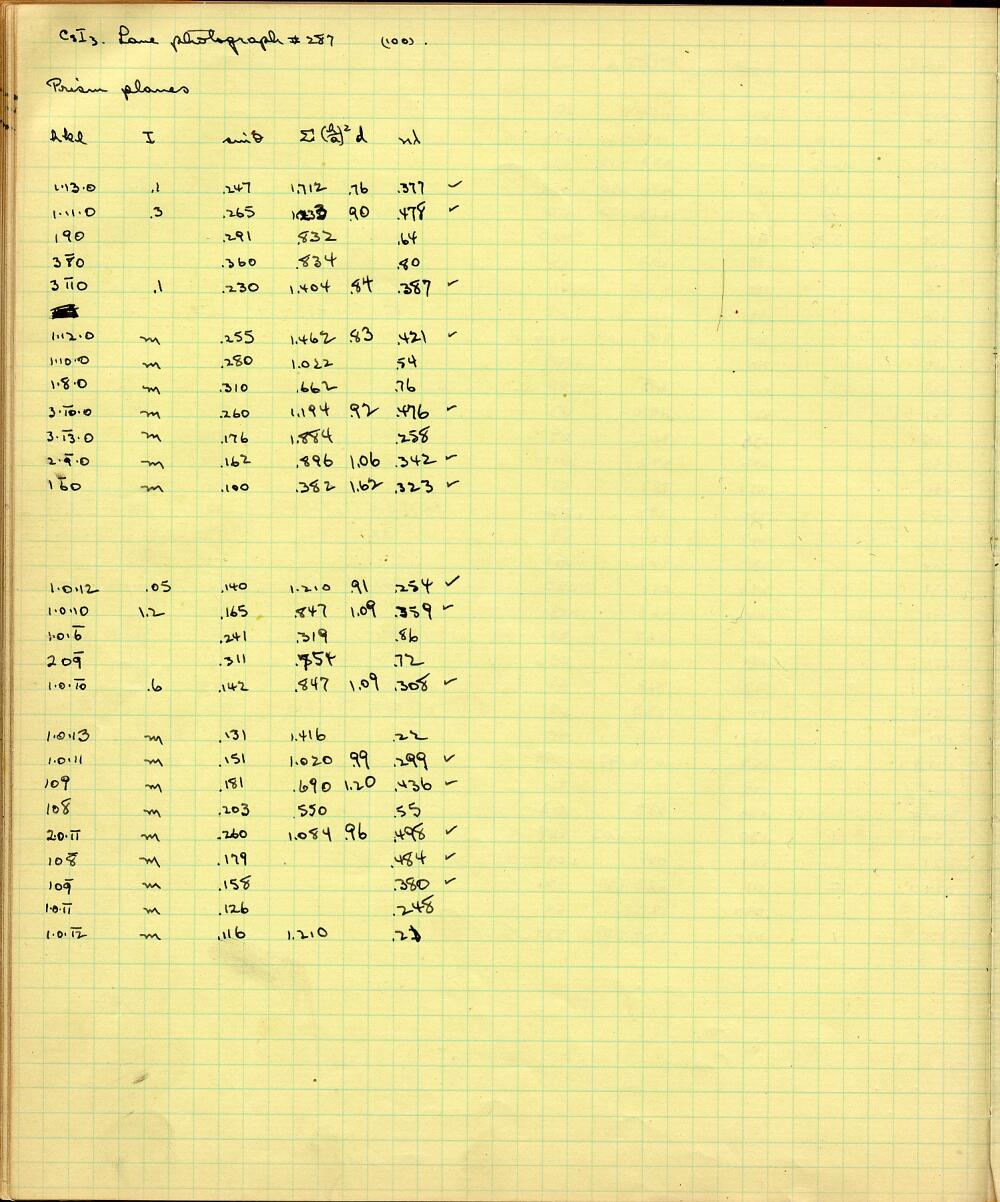 CsI₃. Laue photograph # 287 (100).
Prism planes
hkl I sinθ Σ(h/a)² d nλ
1·13·0 .1 .247 1.712 .76 .377 ✓
1·11·0 .3 .265 1.233 .90 .478 ✓
190 .291 .832 .64
3 .360 .834 .80
3 1̅1̅ 0 .1 .230 1.404 .84 .387 ✓
1·12·0 m .255 1.462 .83 .421 ✓
1·10·0 m .280 1.022 .54
1·8·0 m .310 .662 .76
3·1̅0̅·0 m .260 1.194 .92 .476 ✓
3·1̅3̅·0 m .176 1.884 .258
2·9̅·0 m .162 .896 1.06 .342 ✓
1 6̅ 0 m .100 .382 1.62 .323 ✓
1·0·12 .05 .140 1.210 .91 .254 ✓
1·0·10 1.2 .165 .847 1.09 .359 ✓
1·0·6̅ .241 .319 .86
2 0 9̅ .311 .754 .72
1·0·1̅0̅ .6 .142 .847 1.09 .308 ✓
1·0·13 m .131 1.416 .22
1·0·11 m .151 1.020 .99 .299 ✓
109 m .181 .690 1.20 .436 ✓
108 m .203 .550 .55
2·0·1̅1̅ m .260 1.084 .96 .498 ✓
1 0 8̅ m .179 .484 ✓
1 0 9̅ m .158 .380 ✓
1·0·1̅1̅ m .126 .248
1·0·1̅2̅ m .116 1.210